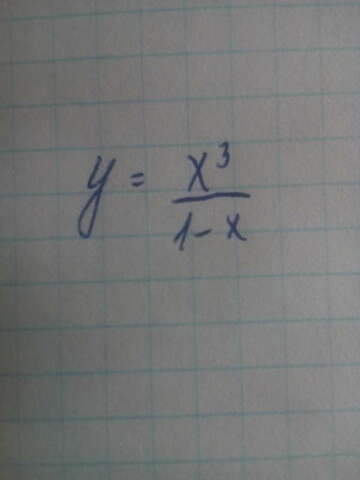 y = x³/(1-x)